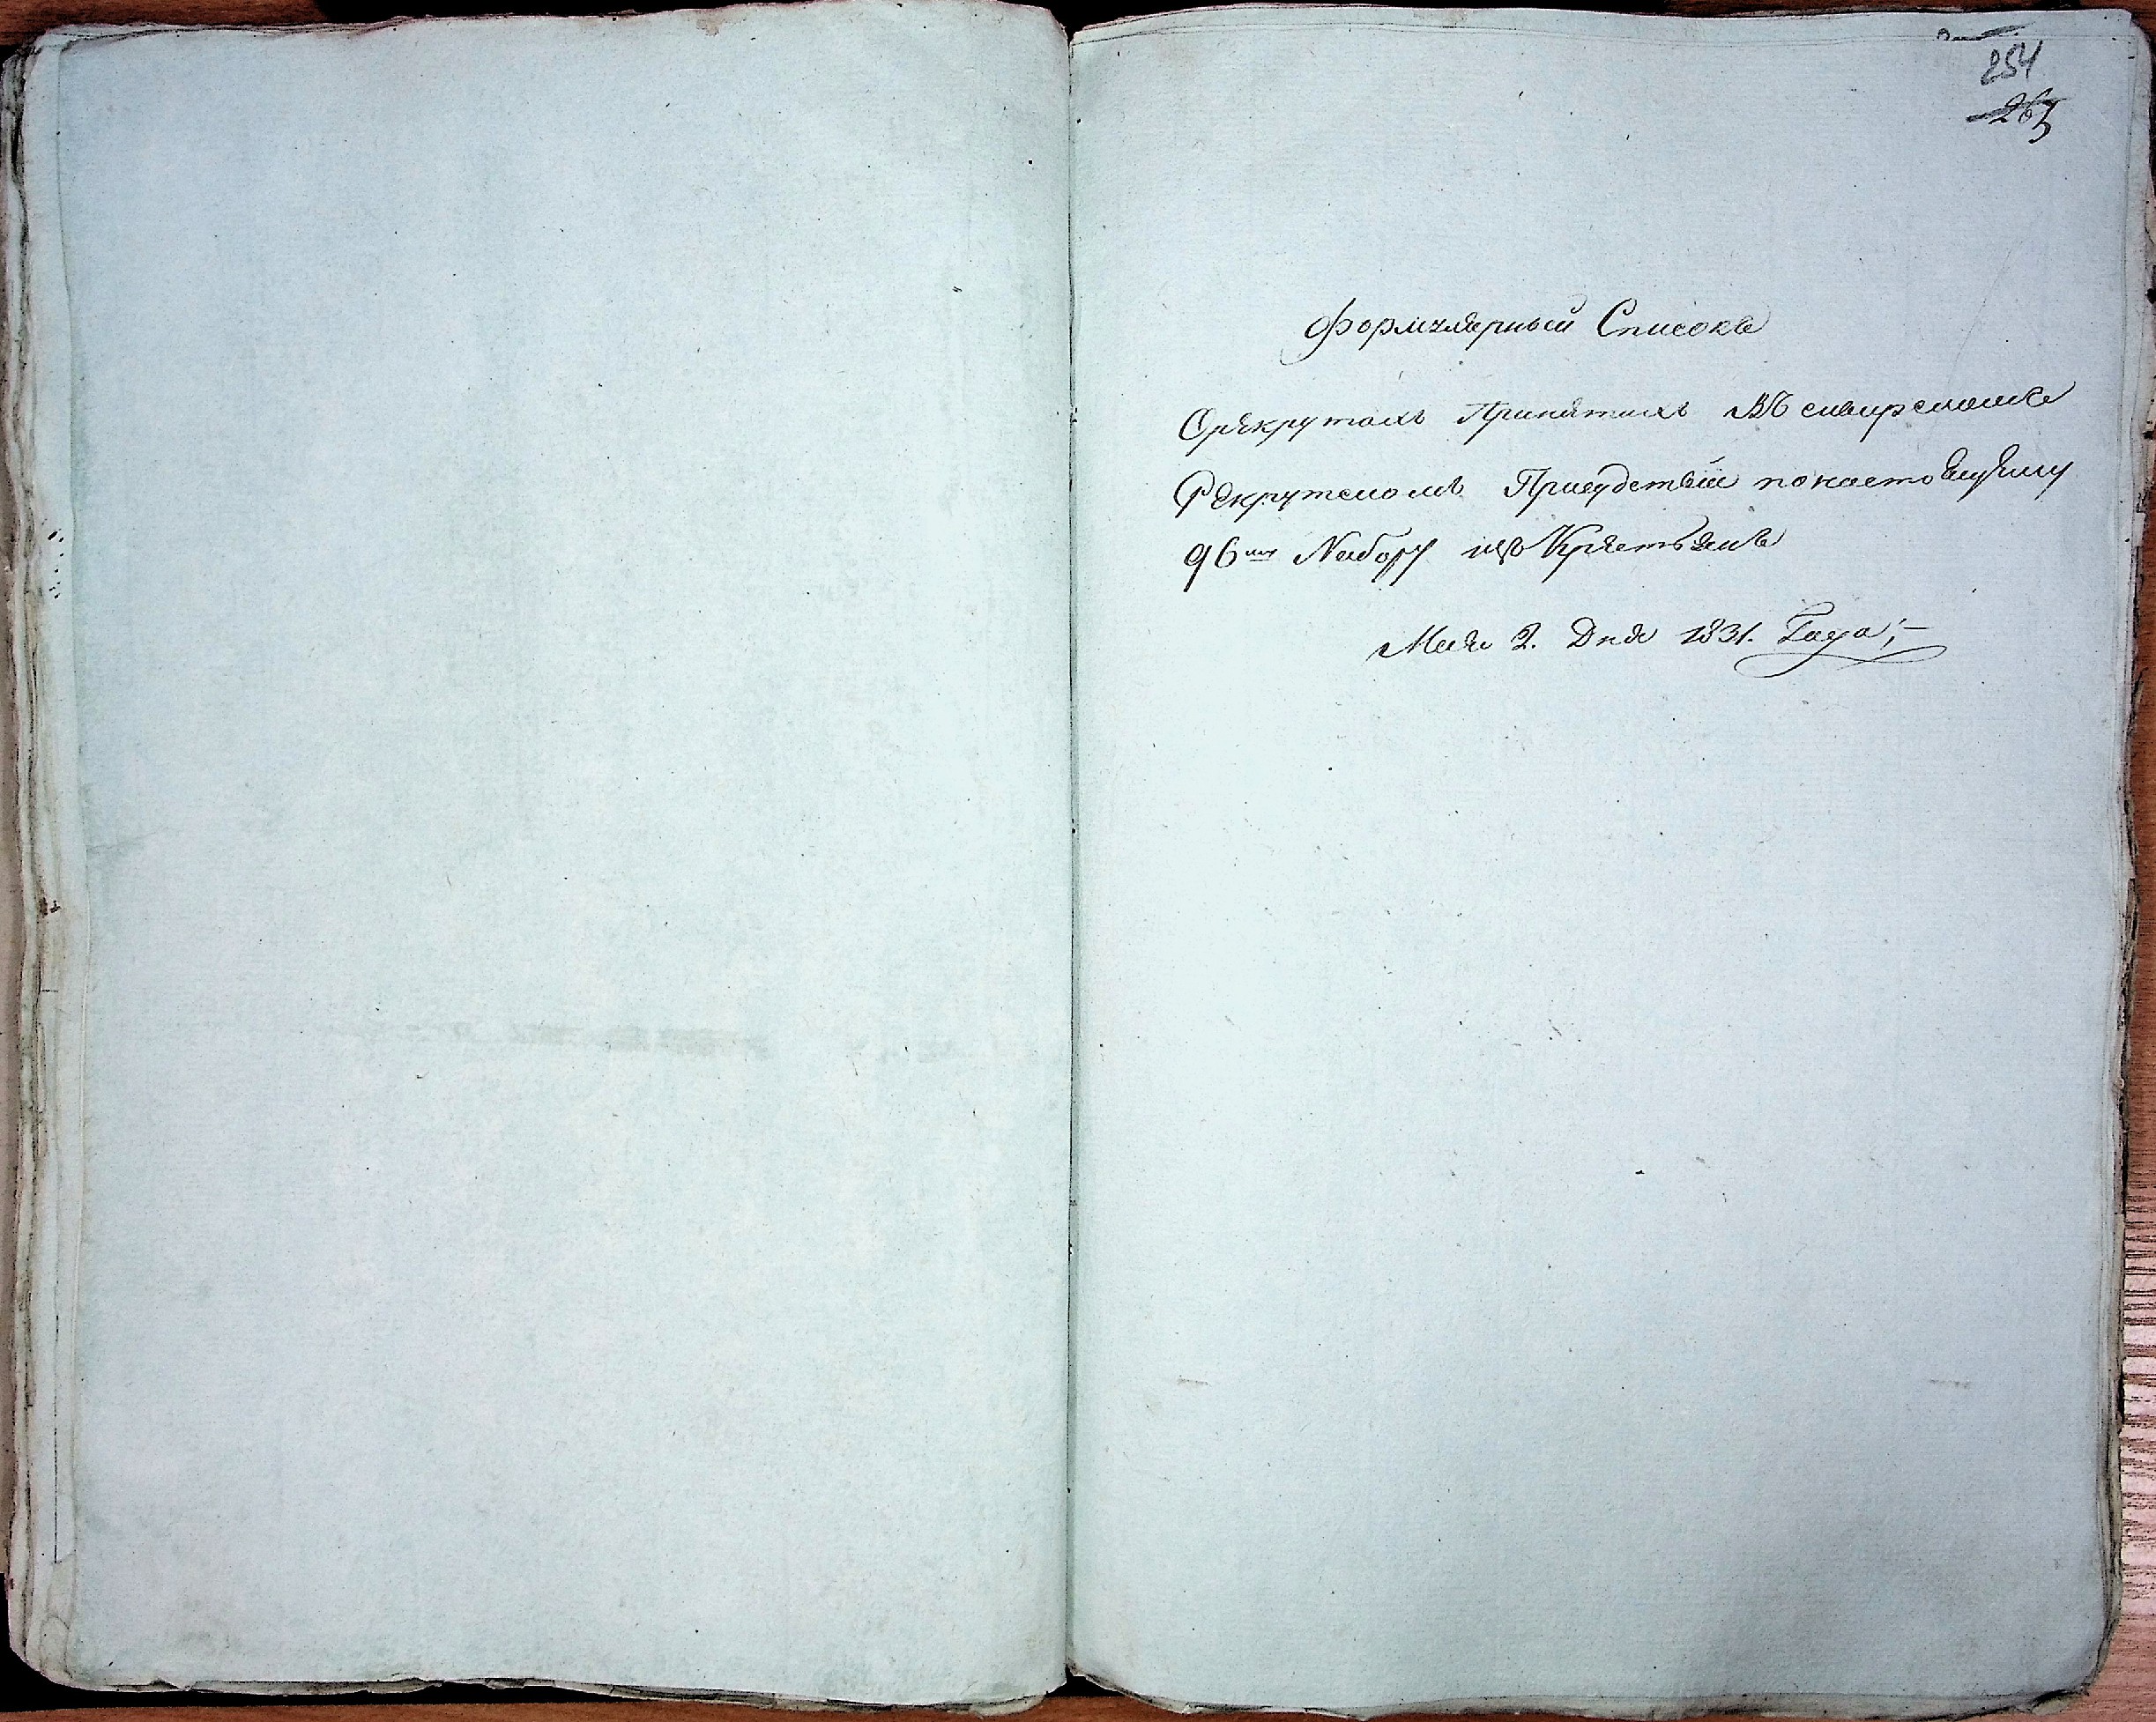 254
265
Формулярный Списокъ
Орекрутахъ Принятыхъ Въ симбирскомъ
Рекрутскомъ Присудствіи по настоящему
96му Набору изъ Крестьянъ
Мая 2. Дня 1831. Года;